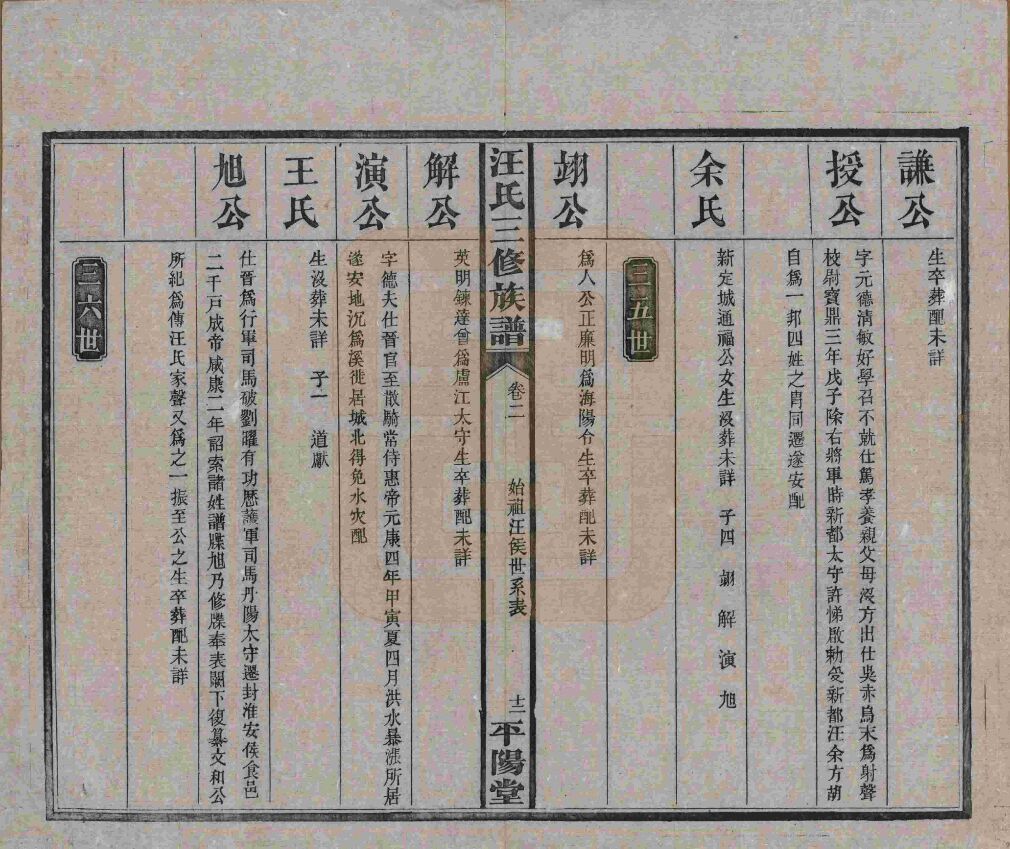 謙公
生卒葬配未詳
授公
字元德清敏好學召不就仕篤孝養親父母沒方出仕吳赤烏末爲射聲
校尉寶鼎三年戊子除右將軍時新都太守許悌啟勅受新都汪余方胡
自爲一邦四姓之首同遷遂安配
余氏
新定城通福公女生沒葬未詳 子四 翊 解 演 旭
三五世
翊公
爲人公正廉明爲海陽令生卒葬配未詳
汪氏三修族譜
卷二
始祖汪侯世系表
十二
平陽堂
解公
英明鍊達曾爲廬江太守生卒葬配未詳
演公
字德夫仕晉官至散騎常侍惠帝元康四年甲寅夏四月洪水暴漲所居
遂安地沉爲溪徙居城北得免水灾配
王氏
生沒葬未詳 子一 道獻
旭公
仕晉爲行軍司馬破劉曜有功歷護軍司馬丹陽太守遷封淮安侯食邑
二千戸成帝咸康二年詔索諸姓譜牒旭乃修牒奉表闕下復纂文和公
所紀爲傳汪氏家聲又爲之一振至公之生卒葬配未詳
三六世